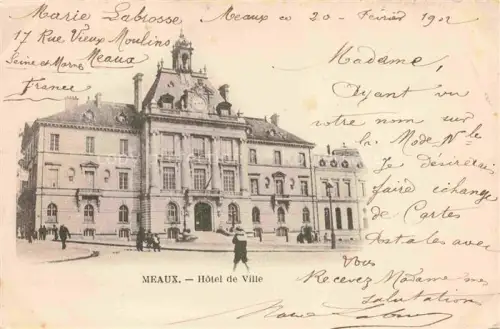 Marie Labrosse
17 Rue Vieux Moulins
Meaux
Seine et Marne
France
Meaux le 20 - Février 1902
Madame,
Ayant vu
votre nom sur
la Mode Nlle
Je désirerai
faire échange
de Cartes
Postales avec
vous
Recevez Madame mes
salutations
Marie Labrosse
MEAUX. — Hôtel de Ville